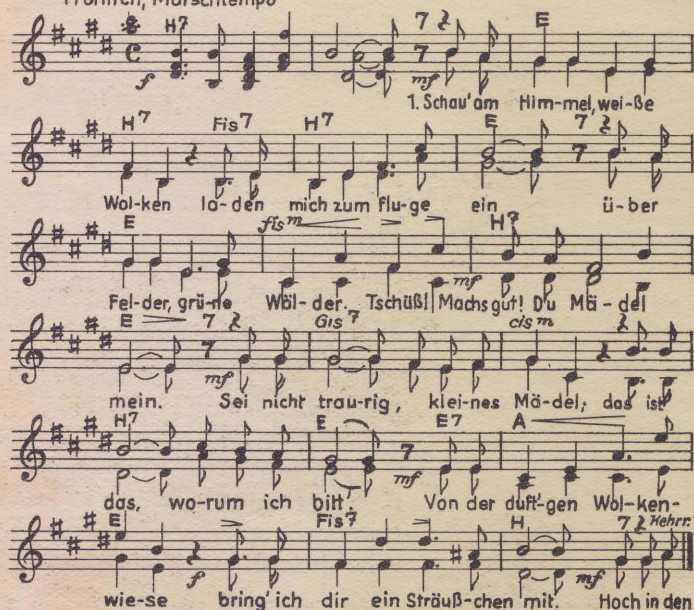 Fröhlich, Marschtempo
H7 E
f mf
1. Schau' am Him-mel, wei-ße
H7 Fis7 H7 E
Wol-ken lo-den mich zum Flu-ge ein ü-ber
E fis m H7
mf
Fel-der, grü-ne Wäl-der. Tschüß! Machs gut! Du Mä-del
E Gis7 cis m
mf
mein. Sei nicht trau-rig, klei-nes Mä-del, das ist
H7 E E7 A
mf
das, wo-rum ich bitt', Von der duft-gen Wol-ken-
E Fis7 H Kehrr.
f mf
wie-se bring' ich dir ein Sträuß-chen mit. Hoch in den